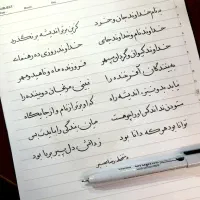 به نام خداوند جان و خرد کزین برتر اندیشه بر نگذرد
خداوند نام و خداوند جای خداوند روزی ده رهنمای
خداوند کیوان و گردان سپهر فروزنده ماه و ناهید و مهر
به بینندگان آفریننده را نبینی مرنجان دو بیننده را
نیابد بدو نیز اندیشه راه که او برتر از نام و از جایگاه
ستودن نداند کس او را چو هست میان بندگی را ببایدت بست
توانا بود هر که دانا بود ز دانش دل پیر برنا بود